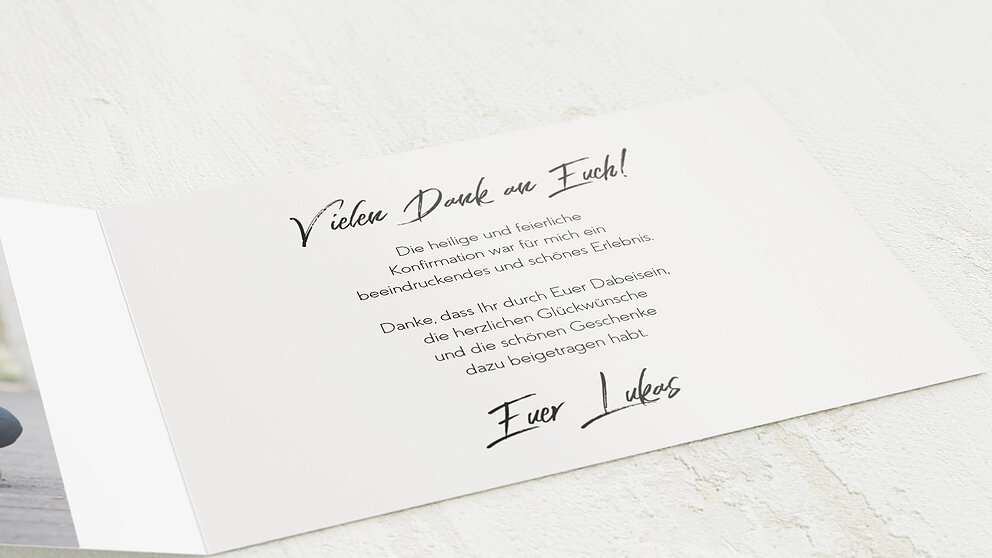 Vielen Dank an Euch!
Die heilige und feierliche
Konfirmation war für mich ein
beeindruckendes und schönes Erlebnis.
Danke, dass Ihr durch Euer Dabeisein,
die herzlichen Glückwünsche
und die schönen Geschenke
dazu beigetragen habt.
Euer Lukas